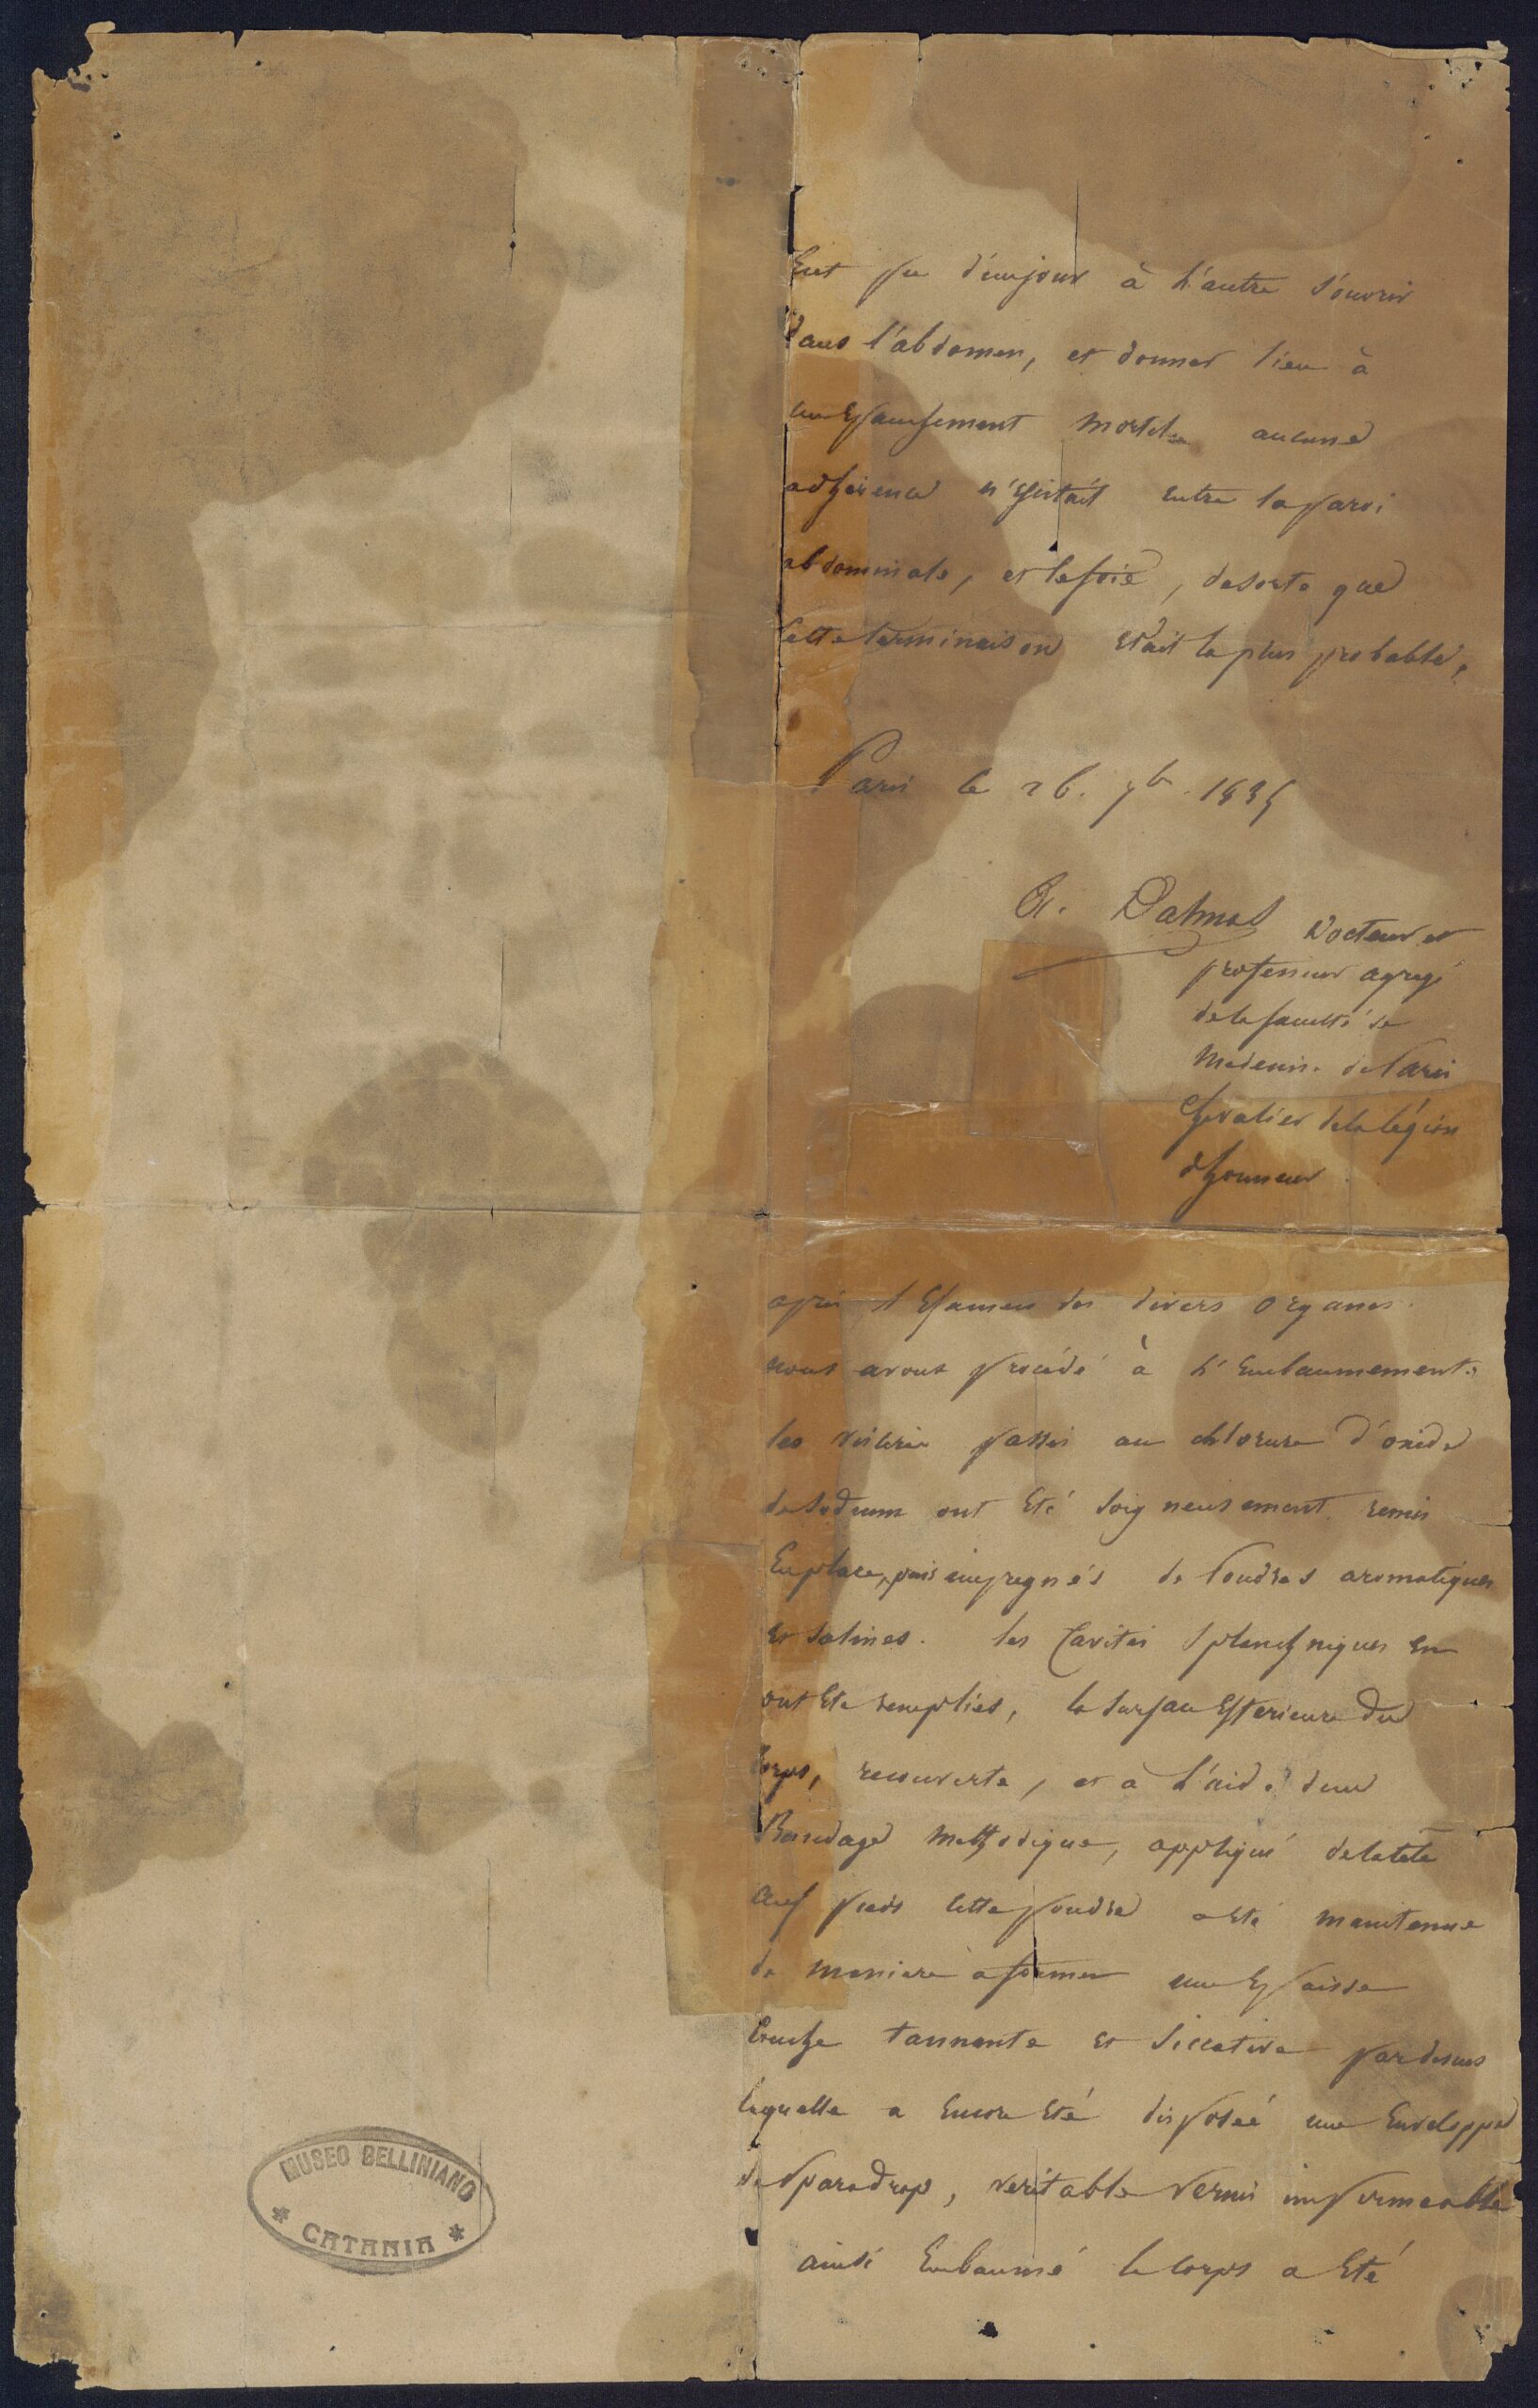 Eut pu d'un jour à l'autre s'ouvrir
Dans l'abdomen, et donner lieu à
un Epanchement mortel aucune
adherence n'Existait entre la paroi
abdominale, et le foie, de sorte que
Cette terminaison Etait la plus probable,
Paris le 26. 7b. 1835
A. Dalmas Docteur et
professeur agregé
de la faculté de
Medecine de Paris
Chevalier de la légion
d'honneur
après l'Examen des divers organes.
nous avons procédé à l'Embaumement.
les viscères passés au chlorure d'oxide
de sodium ont Eté soigneusement remis
En place, puis impregnés de Poudres aromatiques
Et salines. les Cavités splanchniques en
ont Eté remplies, la surface Exterieure du
Corps, recouverte, et à l'aide d'un
Bandage methodique, appliqué de la tete
aux pieds cette poudre a eté maintenue
de maniere à former une Epaisse
Couche tannante et siccative par dessus
laquelle a Encore Eté disposée une Enveloppe
de sparadrap, veritable vernis impermeable
ainsi Embaumé le corps a Eté
MUSEO BELLINIANO
* CATANIA *